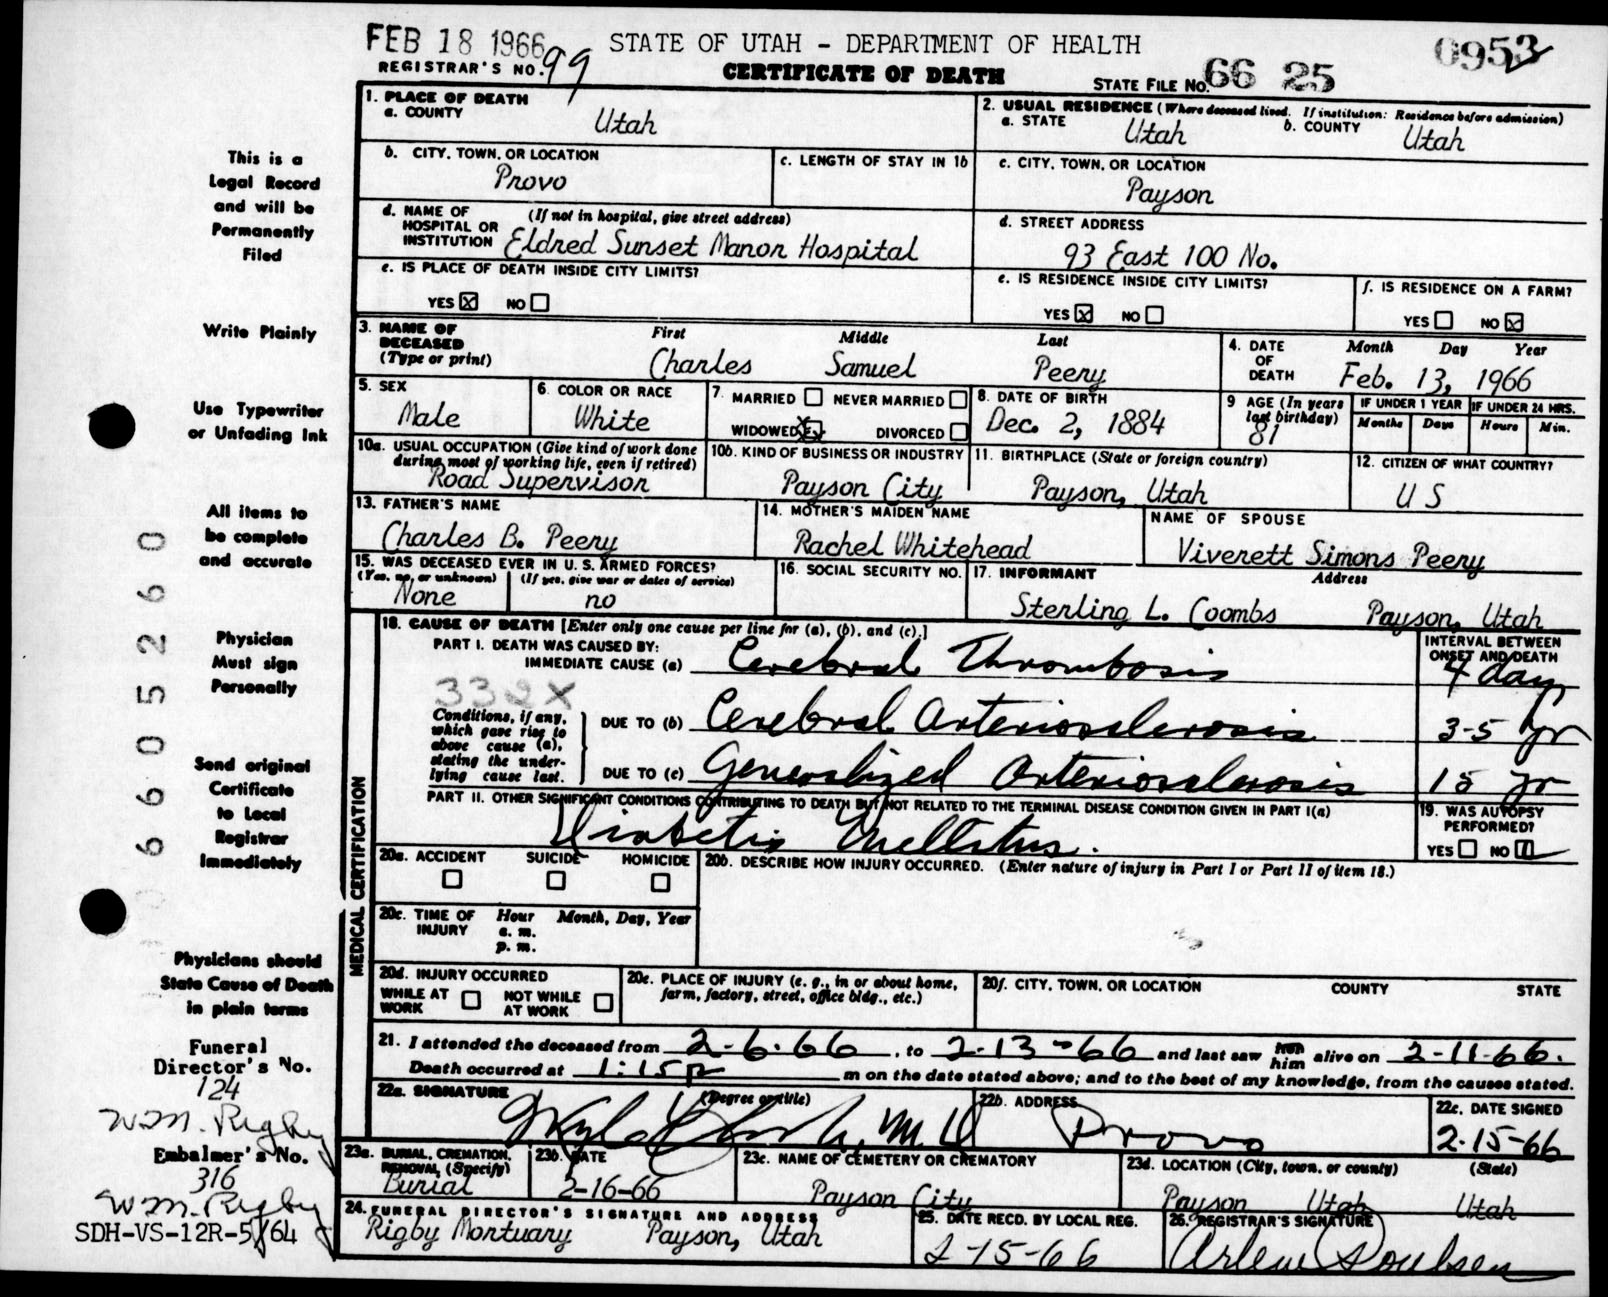 FEB 18 1966 STATE OF UTAH - DEPARTMENT OF HEALTH 0953
REGISTRAR'S NO. 99 CERTIFICATE OF DEATH STATE FILE NO. 66 25
1. PLACE OF DEATH
a. COUNTY Utah
2. USUAL RESIDENCE (Where deceased lived. If institution: Residence before admission)
a. STATE Utah b. COUNTY Utah
b. CITY, TOWN, OR LOCATION Provo
c. LENGTH OF STAY IN 1b
c. CITY, TOWN, OR LOCATION Payson
d. NAME OF HOSPITAL OR INSTITUTION (If not in hospital, give street address)
Eldred Sunset Manor Hospital
d. STREET ADDRESS
93 East 100 No.
e. IS PLACE OF DEATH INSIDE CITY LIMITS?
YES X NO
e. IS RESIDENCE INSIDE CITY LIMITS?
YES X NO
f. IS RESIDENCE ON A FARM?
YES NO X
3. NAME OF DECEASED (Type or print)
First Middle Last
Charles Samuel Peery
4. DATE OF DEATH Month Day Year
Feb. 13, 1966
5. SEX
Male
6. COLOR OR RACE
White
7. MARRIED NEVER MARRIED
WIDOWED X DIVORCED
8. DATE OF BIRTH
Dec. 2, 1884
9 AGE (In years last birthday)
81
IF UNDER 1 YEAR IF UNDER 24 HRS.
Months Days Hours Min.
10a. USUAL OCCUPATION (Give kind of work done during most of working life, even if retired)
Road Supervisor
10b. KIND OF BUSINESS OR INDUSTRY
Payson City
11. BIRTHPLACE (State or foreign country)
Payson, Utah
12. CITIZEN OF WHAT COUNTRY?
U S
13. FATHER'S NAME
Charles B. Peery
14. MOTHER'S MAIDEN NAME
Rachel Whitehead
NAME OF SPOUSE
Viverett Simons Peery
15. WAS DECEASED EVER IN U. S. ARMED FORCES?
(Yes, no, or unknown) (If yes, give war or dates of service)
None no
16. SOCIAL SECURITY NO.
17. INFORMANT Address
Sterling L. Coombs Payson, Utah
MEDICAL CERTIFICATION
18. CAUSE OF DEATH [Enter only one cause per line for (a), (b), and (c).]
INTERVAL BETWEEN ONSET AND DEATH
PART I. DEATH WAS CAUSED BY:
IMMEDIATE CAUSE (a) Cerebral Thrombosis 4 day
332X
Conditions, if any, which gave rise to above cause (a), stating the underlying cause last.
DUE TO (b) Cerebral Arteriosclerosis 3-5 yr
DUE TO (c) Generalized Arteriosclerosis 15 yr
PART II. OTHER SIGNIFICANT CONDITIONS CONTRIBUTING TO DEATH BUT NOT RELATED TO THE TERMINAL DISEASE CONDITION GIVEN IN PART I(a)
Diabetis Mellitus.
19. WAS AUTOPSY PERFORMED?
YES NO
20a. ACCIDENT SUICIDE HOMICIDE
20b. DESCRIBE HOW INJURY OCCURRED. (Enter nature of injury in Part I or Part II of item 18.)
20c. TIME OF INJURY Hour Month, Day, Year
a. m.
p. m.
20d. INJURY OCCURRED
WHILE AT WORK NOT WHILE AT WORK
20e. PLACE OF INJURY (e. g., in or about home, farm, factory, street, office bldg., etc.)
20f. CITY, TOWN, OR LOCATION COUNTY STATE
21. I attended the deceased from 2-6-66, to 2-13-66 and last saw him alive on 2-11-66.
Death occurred at 1:15p m on the date stated above; and to the best of my knowledge, from the causes stated.
22a. SIGNATURE (Degree or title)
M.D
22b. ADDRESS
Provo
22c. DATE SIGNED
2-15-66
23a. BURIAL, CREMATION, REMOVAL, (Specify)
Burial
23b. DATE
2-16-66
23c. NAME OF CEMETERY OR CREMATORY
Payson City
23d. LOCATION (City, town, or county) (State)
Payson Utah Utah
24. FUNERAL DIRECTOR'S SIGNATURE AND ADDRESS
Rigby Mortuary Payson, Utah
25. DATE RECD. BY LOCAL REG.
2-15-66
26. REGISTRAR'S SIGNATURE
Arlene Poulsen
This is a
Legal Record
and will be
Permanently
Filed
Write Plainly
Use Typewriter
or Unfading Ink
All items to
be complete
and accurate
Physician
Must sign
Personally
Send original
Certificate
to Local
Registrar
Immediately
Physicians should
State Cause of Death
in plain terms
Funeral
Director's No.
124
Wm. Rigby
Embalmer's No.
316
Wm. Rigby
SDH-VS-12R-5/64
6605260